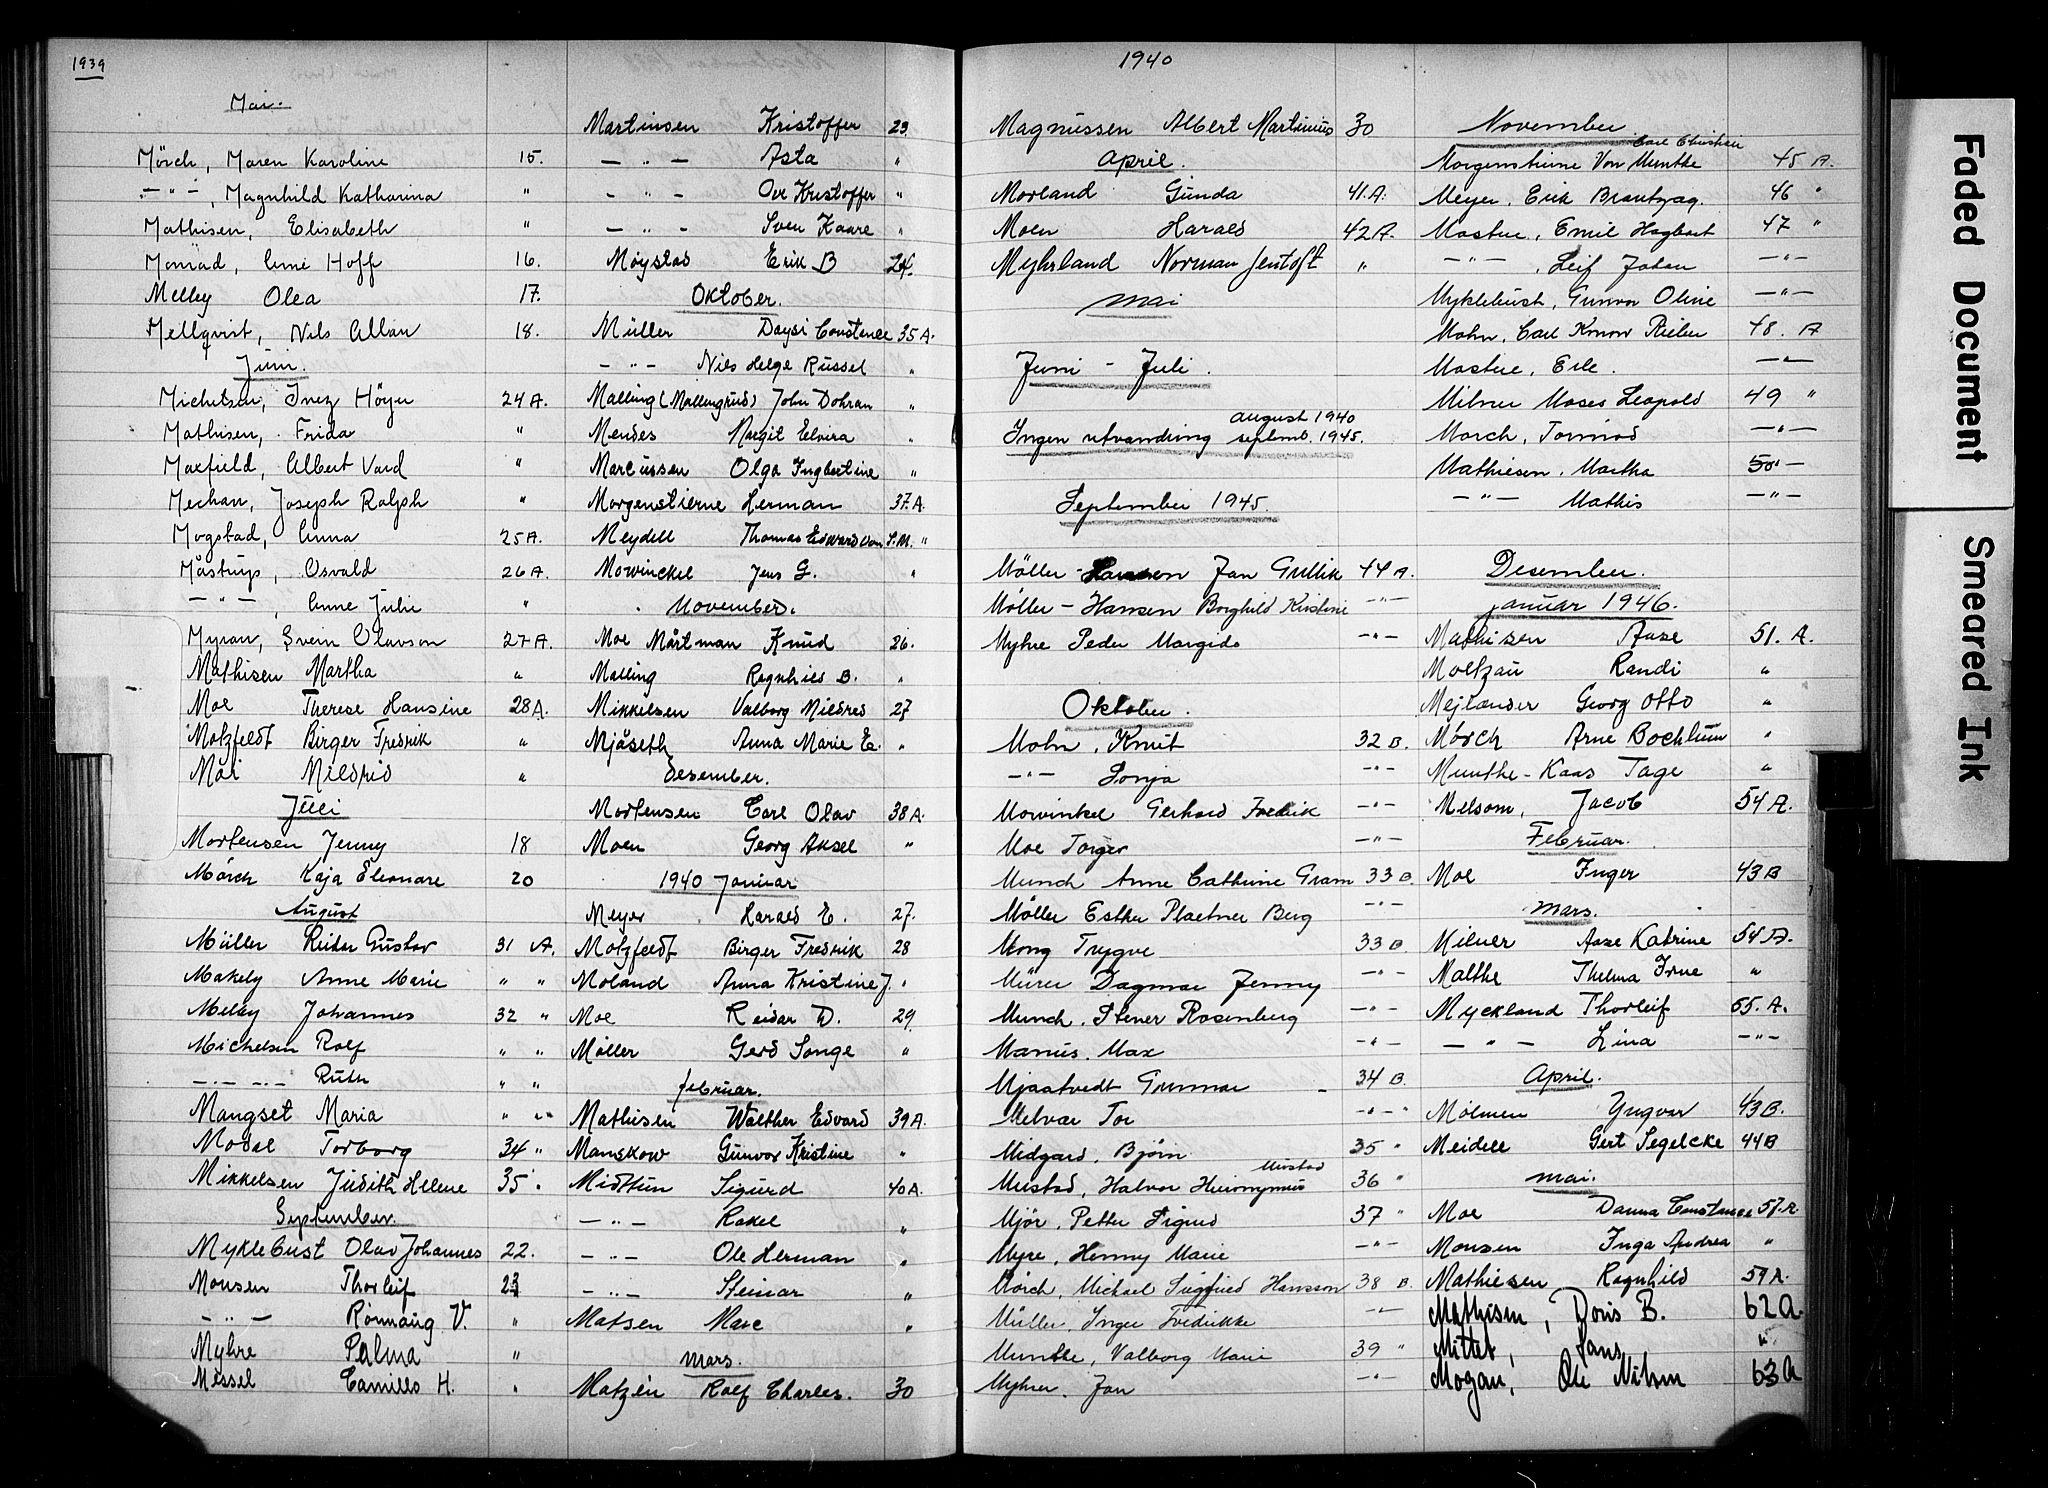 1939
Mai.
Mörch, Maren Karoline 15.
— " — , Magnhild Katharina "
Mathisen, Elisabeth "
Hoff 16.
Melby Olea 17.
Mellqvist, Nils Allan 18.
Juni.
Michelsen, Inez Höyer 24 A.
Mathisen, Frida "
Maxfield, Albert Vard "
Mechan, Joseph Ralph "
Mogstad, Anna 25 A.
Måstrup, Osvald 26 A.
— " — , Anne Julie "
Myran, Svein Olavson 27 A.
Mathisen Martha "
Moe Therese Hansine 28 A.
Motzfeldt Birger Fredrik "
Moi Mildrid "
Juli
Mortensen Jenny 18
Mörch Kaja Eleonare 20
August
Müller Reidar Gustav 31 A.
Makely Anne Marie " "
Melby Johannes 32 "
Michelsen Rolf " "
— . — . — Ruth " "
Mangset Maria " "
Modal Torborg 34 "
Mikkelsen Judith Helene 35 "
September.
Myklebust Olav Johannes 22.
Monsen Thorleif 23
— " — Rönnaug V. "
Myhre Palma "
Missel Camillo H. "
Martinsen Kristoffer 23
— " — Asta "
— " — Ove Kristoffer "
— " — Sven Kaare "
Möystad Erik B 24.
Oktober.
Müller Daysi Constance 35 A.
— " — Nils Helge Russel "
Malling (Mallingrud) John Dohran "
Mendes Margit Elvira "
Marcussen Olga Ingbertine "
Morgenstierne Herman 37. A.
Meydell Thomas Edward von S.M. "
Mowinckel Jens G. "
November.
Moe Mårtman Knud 26.
Malling Ragnhild B. "
Mikkelsen Valborg Mildred 27
Mjåseth Anna Marie E. "
Desember.
Mortensen Carl Olav 38 A.
Moen Georg Aksel "
1940 Januar
Meyer Harald E. 27.
Motzfeldt Birger Fredrik 28
Moland Anna Kristine J. "
Moe Reidar D. 29.
Møller Gerd Songe "
februar.
Mathisen Walther Edvard 39 A.
Manskow Gunvor Kristine "
Midttun Sigurd 40 A.
— " — Rakel "
— " — Ole Herman "
— " — Steinar "
Matsen Mare "
Mars.
Matzén Rolf Charles. 30
1940
Magnussen Albert Martinius 30
April.
Morland Gunda 41. A.
Moen Harald 42 A.
Myhrland Norman Jentoft "
Mai
Juni - Juli.
august 1940
Ingen utvandring septmb. 1945.
September 1945.
Möller - Hansen Jan Gullik 44 A.
Möller - Hansen Borghild Kristine — " —
Myhre Peder Margido — " —
Oktober.
Mohn, Knut 32 B.
— " — Sonja — " —
Mowinkel Gerhard Fredrik — " —
Moe Torger — " —
Munch Anne Cathrine Gram 33 B.
Möller Esther Plaetner Berg — " —
Mong Trygve 33 B
Mürer Dagmar Jenny — " —
Munch, Stener Rosenberg — " —
Manus, Max — " —
Mjaatvedt Gunnar 34 B.
Melvær Tor — " — "
Midgard, Bjørn 35 "
Mustad
Mustad, Halvor Hieronymus 36 "
Mjör, Petter Sigurd 37 "
Myre, Henny Marie — " —
Mörch, Michael Sigfried Hansson 38 B.
Müller, Inger Fredrikke — " —
Munthe, Valborg Marie 39 "
Myhrer, Jan — " —
November
Carl Christian
Morgenstierne Von Munthe 45 A.
Meyer, Erik Brantzæg. 46 "
Mostue, Emil Hagbart 47 "
— " — , Leif Johan — " —
Myklebust, Gunvor Oline — " —
Mohn, Carl Konow Rieber 48. A
Mostue, Erle. — " —
Milner Moses Leopold 49 "
Morch, Tormod — " —
Mathiesen, Martha 50 —
— " — Mathis — " —
Desember.
Januar 1946.
Mathisen Aase 51. A.
Moltzau Randi "
Mejlænder Georg Otto "
Mörch Arne Bochlum "
Munthe-Kaas Tage "
Melsom, Jacob 54 A.
Februar.
Moe Inger 43 B
Mars.
Milner Aase Katrine 54 A.
Malthe Thelma Irne "
Myckland Thorleif 55. A.
— " — Lina — " —
April.
Molmen Yngvar 43 B.
Meidell Gert Segelcke 44 B
Mai.
Moe Danna Constance 57. A
Monsen Inga Andrea "
Mathiesen Ragnhild 59 A.
Mathisen, Doris B. 62 A.
Mittet, Hans "
Mogan, Ole Nilsen 63 A
Faded Document
Smeared Ink